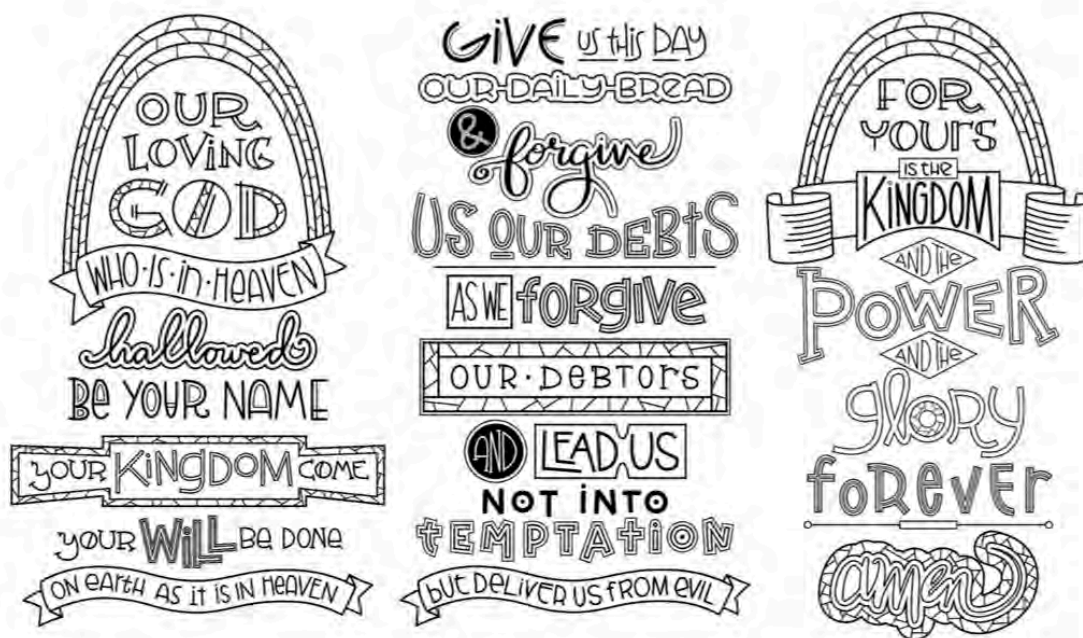 OUR
LOVING
GOD
WHO·IS·in·HEAVEN
hallowed
Be YOUR NAME
YOUR KINGDOM COME
YOUR WILL BE DONE
ON eARtH AS it IS iN HEAVEN
GiVE us this DAY
OUR-DAiLY-BREAD
& forgive
US OUR DEBtS
AS WE foRgIVe
OUR·DeBtORS
AND LEAD US
NOT iNTO
tEMPTAtiON
but DELiVER US FROM EViL
FOR
YOUrS
is the
KiNGDOM
AND tHe
POWER
AND tHe
glORY
foReveR
amen